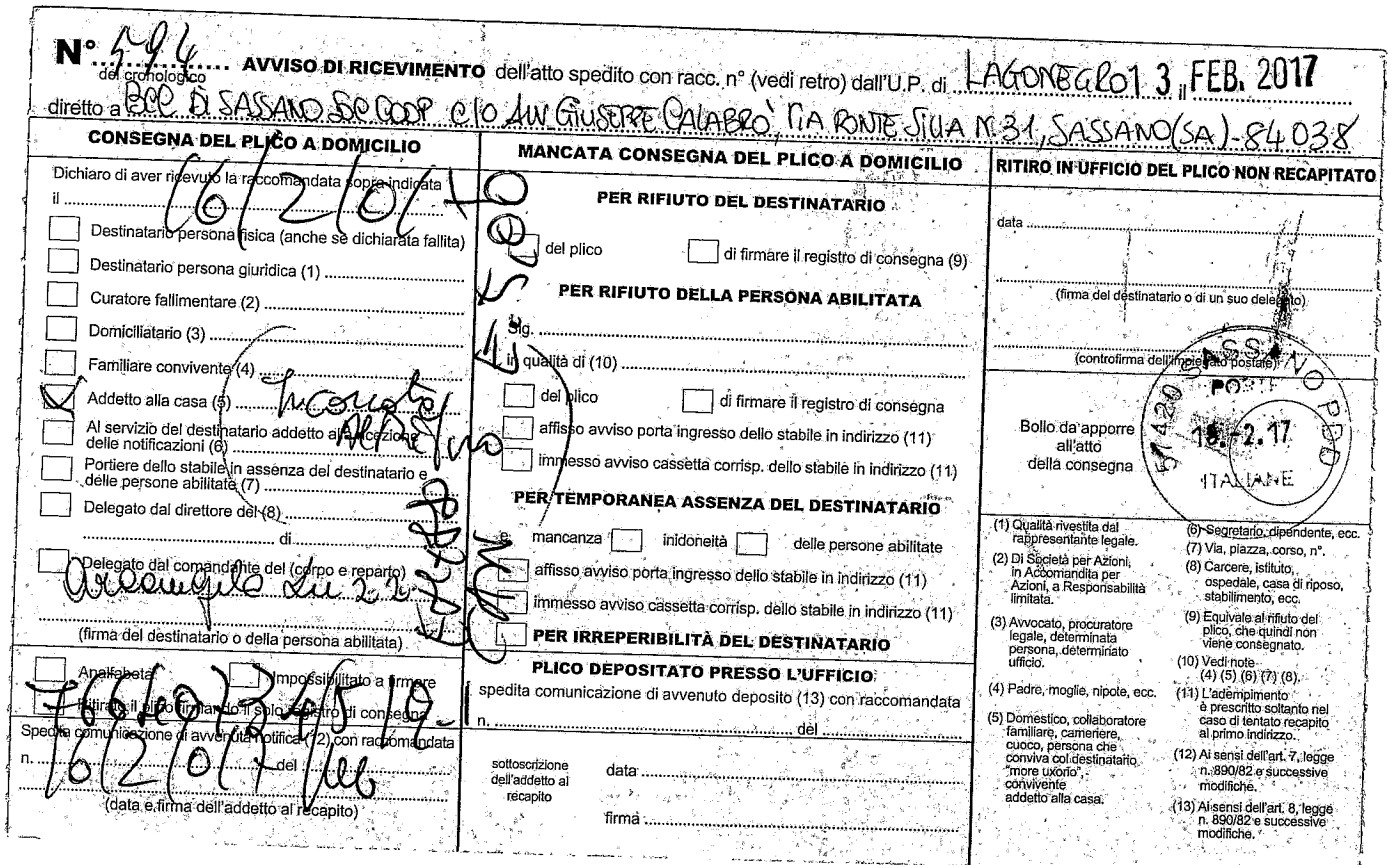 N° 594 AVVISO DI RICEVIMENTO dell'atto spedito con racc. n° (vedi retro) dall'U.P. di LAGONEGRO 13 il FEB. 2017
del cronologico
diretto a BCC DI SASSANO SOC COOP C/O AVV GIUSEPPE CALABRÒ, VIA PONTE SILLA N.31, SASSANO (SA)-84038
CONSEGNA DEL PLICO A DOMICILIO
Dichiaro di aver ricevuto la raccomandata sopra indicata
il 16/2/017
Destinatario persona fisica (anche se dichiarata fallita)
Destinatario persona giuridica (1)
Curatore fallimentare (2)
Domiciliatario (3)
Familiare convivente (4)
Addetto alla casa (5)
Al servizio del destinatario addetto alla ricezione
delle notificazioni (6)
Portiere dello stabile in assenza del destinatario e
delle persone abilitate (7)
Delegato dal direttore del (8)
di
Delegato dal comandante del (corpo e reparto)
(firma del destinatario o della persona abilitata)
Analfabeta Impossibilitato a firmare
Ritirato il plico firmando il solo registro di consegna
766 9073405 19-
Spedita comunicazione di avvenuta notifica (12) con raccomandata
n. 16/2/017 del
(data e firma dell'addetto al recapito)
MANCATA CONSEGNA DEL PLICO A DOMICILIO
PER RIFIUTO DEL DESTINATARIO
del plico di firmare il registro di consegna (9)
PER RIFIUTO DELLA PERSONA ABILITATA
Sig.
in qualità di (10)
del plico di firmare il registro di consegna
affisso avviso porta ingresso dello stabile in indirizzo (11)
immesso avviso cassetta corrisp. dello stabile in indirizzo (11)
PER TEMPORANEA ASSENZA DEL DESTINATARIO
e mancanza inidoneità delle persone abilitate
affisso avviso porta ingresso dello stabile in indirizzo (11)
immesso avviso cassetta corrisp. dello stabile in indirizzo (11)
PER IRREPERIBILITÀ DEL DESTINATARIO
PLICO DEPOSITATO PRESSO L'UFFICIO
spedita comunicazione di avvenuto deposito (13) con raccomandata
n. del
sottoscrizione
dell'addetto al
recapito
data
firma
RITIRO IN UFFICIO DEL PLICO NON RECAPITATO
data
(firma del destinatario o di un suo delegato)
(controfirma dell'impiegato postale)
Bollo da apporre
all'atto
della consegna
51420 SASSANO PDD
POSTE
16.-2.17
ITALIANE
(1) Qualità rivestita dal
rappresentante legale.
(2) Di Società per Azioni,
in Accomandita per
Azioni, a Responsabilità
limitata.
(3) Avvocato, procuratore
legale, determinata
persona, determinato
ufficio.
(4) Padre, moglie, nipote, ecc.
(5) Domestico, collaboratore
familiare, cameriere,
cuoco, persona che
conviva col destinatario
"more uxorio",
convivente
addetto alla casa.
(6) Segretario, dipendente, ecc.
(7) Via, piazza, corso, n°.
(8) Carcere, istituto,
ospedale, casa di riposo,
stabilimento, ecc.
(9) Equivale al rifiuto del
plico, che quindi non
viene consegnato.
(10) Vedi note
(4) (5) (6) (7) (8).
(11) L'adempimento
è prescritto soltanto nel
caso di tentato recapito
al primo indirizzo.
(12) Ai sensi dell'art. 7, legge
n. 890/82 e successive
modifiche.
(13) Ai sensi dell'art. 8, legge
n. 890/82 e successive
modifiche.